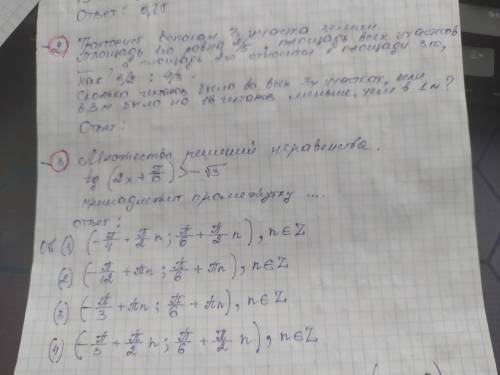 Ответ: 0,25
2 Тракторист вспахал 3 участка земли.
Площадь 1го равна 2/5 площадь всех участков
а площадь 2го относится к площади 3го,
как 3/2 : 4/3.
Сколько гектаров было во всех 3х участках, если
в 3м было на 16 гектаров меньше, чем в 1м?
Ответ:
3 Множество решений неравенства.
tg (2x + π/6) > -√3
принадлежит промежутку ....
ответ:
(1) (-π/4 + π/2 n; π/6 + π/2 n), n∈Z
2) (-π/12 + πn; π/6 + πn), n∈Z
(3) (-π/3 + πn; π/6 + πn), n∈Z
(4) (-π/3 + π/2 n; π/6 + π/2 n), n∈Z